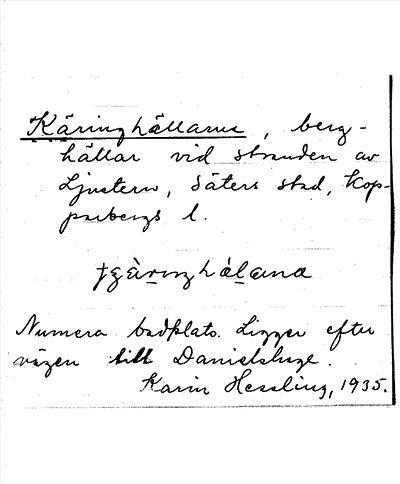 Käringhällarne, berg-
hällar vid stranden av
Ljustern, Säters stad, Kop-
parbergs l.
Numera badplats. Ligger efter
vägen till Danielshage.
Karin Hessling, 1935.